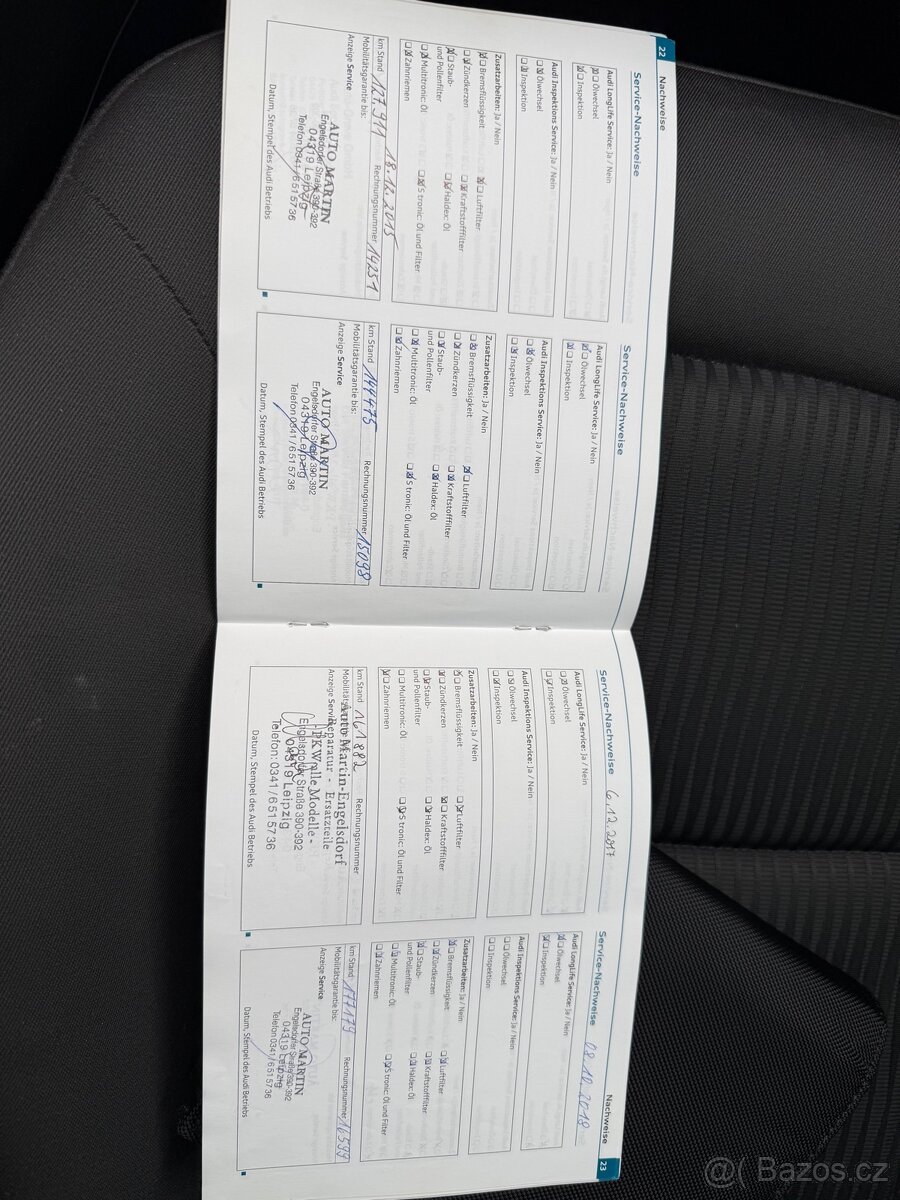 22 Nachweise
Service-Nachweise
Audi LongLife Service: Ja / Nein
Ölwechsel
Inspektion
Audi Inspektions Service: Ja / Nein
Ölwechsel
Inspektion
Zusatzarbeiten: Ja / Nein
Bremsflüssigkeit Luftfilter
Zündkerzen Kraftstofffilter
Staub- Haldex: Öl
und Pollenfilter
Multitronic: Öl S tronic: Öl und Filter
Zahnriemen
km Stand 127.911 18.12.2015 Rechnungsnummer 14251
Mobilitätsgarantie bis:
Anzeige Service
AUTO MARTIN
Engelsdorfer Straße 390-392
04319 Leipzig
Telefon 0341 / 6 51 57 36
Datum, Stempel des Audi Betriebs
Service-Nachweise
Audi LongLife Service: Ja / Nein
Ölwechsel
Inspektion
Audi Inspektions Service: Ja / Nein
Ölwechsel
Inspektion
Zusatzarbeiten: Ja / Nein
Bremsflüssigkeit Luftfilter
Zündkerzen Kraftstofffilter
Staub- Haldex: Öl
und Pollenfilter
Multitronic: Öl S tronic: Öl und Filter
Zahnriemen
km Stand 144475 Rechnungsnummer 15098
Mobilitätsgarantie bis:
Anzeige Service
AUTO MARTIN
Engelsdorfer Straße 390-392
04319 Leipzig
Telefon 0341 / 6 51 57 36
Datum, Stempel des Audi Betriebs
Service-Nachweise 6.12.2017
Audi LongLife Service: Ja / Nein
Ölwechsel
Inspektion
Audi Inspektions Service: Ja / Nein
Ölwechsel
Inspektion
Zusatzarbeiten: Ja / Nein
Bremsflüssigkeit Luftfilter
Zündkerzen Kraftstofffilter
Staub- Haldex: Öl
und Pollenfilter
Multitronic: Öl S tronic: Öl und Filter
Zahnriemen
km Stand 161882 Rechnungsnummer
Anzeige Service
Auto Martin-Engelsdorf
Reparatur - Ersatzteile
- PKW alle Modelle -
Engelsdorfer Straße 390-392
04319 Leipzig
Telefon: 0341 / 6 51 57 36
Datum, Stempel des Audi Betriebs
Nachweise 23
Service-Nachweise 08.10.2018
Audi LongLife Service: Ja / Nein
Ölwechsel
Inspektion
Audi Inspektions Service: Ja / Nein
Ölwechsel
Inspektion
Zusatzarbeiten: Ja / Nein
Bremsflüssigkeit Luftfilter
Zündkerzen Kraftstofffilter
Staub- Haldex: Öl
und Pollenfilter
Multitronic: Öl S tronic: Öl und Filter
Zahnriemen
km Stand 177179 Rechnungsnummer 16599
Mobilitätsgarantie bis:
Anzeige Service
AUTO MARTIN
Engelsdorfer Straße 390-392
04319 Leipzig
Telefon 0341 / 6 51 57 36
Datum, Stempel des Audi Betriebs
@( Bazos.cz